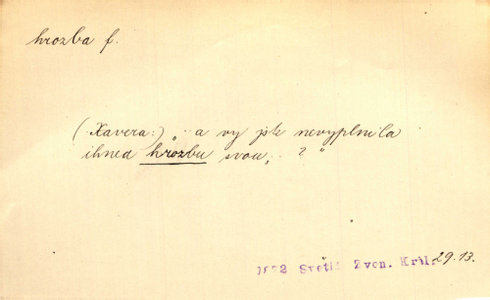 hrozba f.
(Xavera:) „.. a vy jste nevyplnila
ihned hrozbu svou, .. ? “
Světlá Zvon. Král. 29.13.